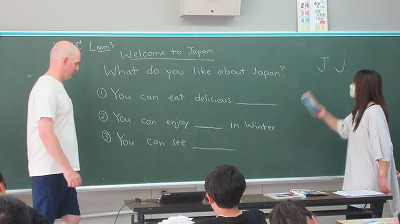 Lesson 3
Welcome to Japan
What do you like about Japan?
J J
① You can eat delicious ______.
② You can enjoy ____ in Winter
③ You can see ______